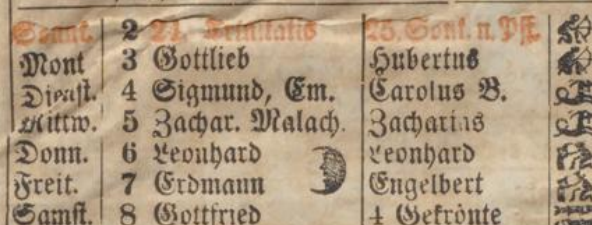 Sonnt. 2 21. Trinitatis 25. Sont. n. Pft.
Mont 3 Gottlieb Hubertus
Dienst. 4 Sigmund, Em. Carolus B.
Mittw. 5 Zachar. Malach. Zacharias
Donn. 6 Leonhard Leonhard
Freit. 7 Erdmann Engelbert
Samst. 8 Gottfried 4 Gekrönte